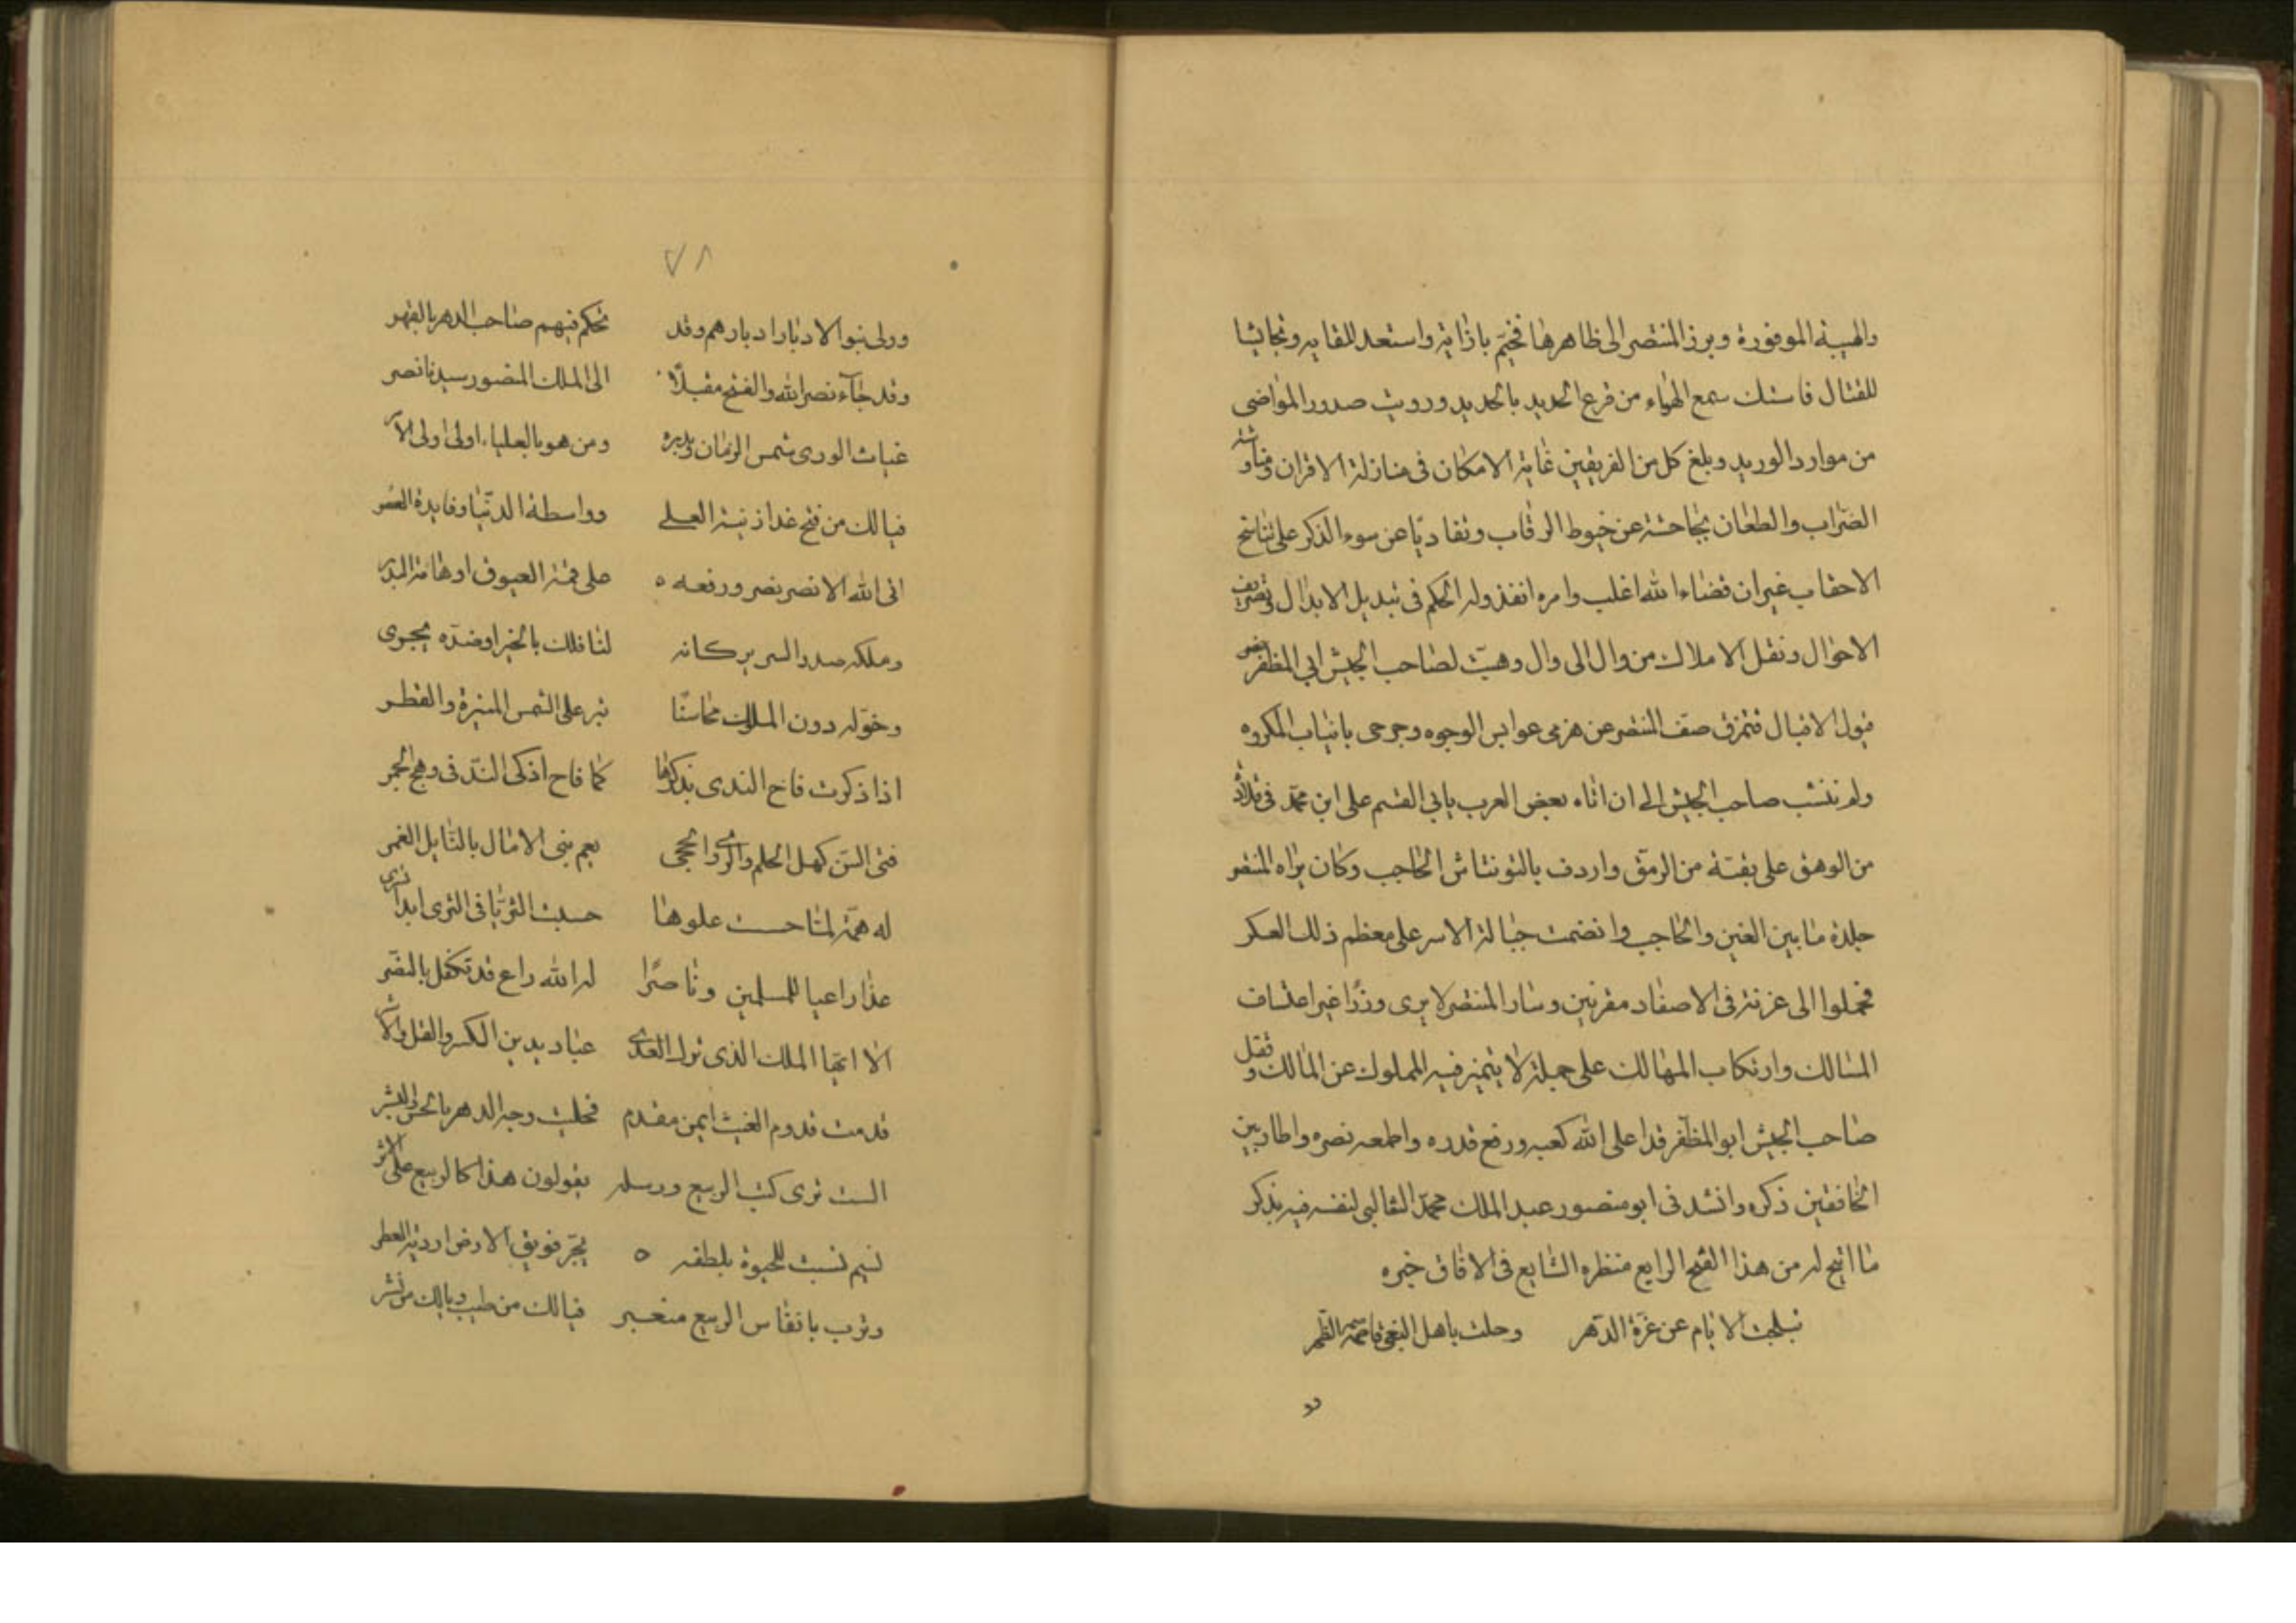 والهيبة الموفورة وبرز المنتصر الى ظاهرها فخيّم بازائه واستعد للقايه وتجاثيا
للقتال فاستك سمع الهواء من قرع الحديد بالحديد ورويت صدور المواضى
من موارد الوريد وبلغ كل من الفريقين غاية الامكان فى منازلة الاقران ومناوشة
الضراب والطعان بجاحشة عن خيوط الرقاب وتفاديا عن سوء الذكر على تناسخ
الاحقاب غيران قضاء الله اغلب وامره انفذ وله الحكم فى تبديل الابدال وتصريف
الاحوال ونقل الاملاك من وال الى وال وهبّت لصاحب الجيش ابى المظفر نصر
قبول الاقبال فتمزق صف المنتصر عن هزمى عوابس الوجوه وجرحى بانياب المكروه
ولم ننشب صاحب الجيش الى ان اتاه بعض العرب بابى القسم على ابن محمد فى قلادة
من الوهق على بقية من الرمق واردف بالتونتاش الحاجب وكان يراه المنتصر
جلدة ما بين العين والحاجب وانضمت حبالة الاسر على معظم ذلك العسكر
فحملوا الى غزنة فى الاصفاد مقرنين وسار المنتصر لا يرى وزرًا غير اعتساف
المسالك وارتكاب المهالك على جملة لا يتميز فيه المملوك عن المالك وقفل
صاحب الجيش ابو المظفر قد اعلى الله كعبه ورفع قدره واطمعه نصره واطار بين
الخافقين ذكره وانشد فى ابو منصور عبد الملك محمد الثعالبى لنفسه فيه يذكر
ما اتيح له من هذا الفتح الرايع منظره الشايع فى الافاق خبره
تبلجت الايام عن غرة الدهر وحلت باهل البغى قاصمة الظهر
وو
٧٨
وولى بنو الادبار ادبارهم وقد تحكم فيهم صاحب الدهر بالقهر
وقد جآء نصر الله والفتح مقبلًا الى الملك المنصور سيدنا نصر
غياث الورى شمس الزمان وبدره ومن هو بالعلياء اولى اولى الامر
فيالك من فتح غدا زينة العلى وواسطة الدنيا وفايدة العصر
ابى الله الا نصر نصر ورفعه ٥ على قمة العيوق او هامة البدر
وملكه صدر السرير كانه لنا فلك بالخير او ضده يجرى
وخوله دون الملوك محاسنًا تبر على الشمس المنيرة والقطر
اذا ذكرت فاح الندى بذكرها كما فاح اذكى الندّ فى وهج الجمر
فتى السن كهل الحلم والراى والحجى يعم بنى الامال بالنايل الغمر
له همة لما حسبت علوها حسبت الثريا فى الثرى ابدا تسرى
غدا راعيا للمسلمين وناصرًا له الله راع قد تكفل بالنصر
الا ايها الملك الذى ترك العدى عباديد بين الكسر والقتل والاسر
قدمت قدوم الغيث ايمن مقدم فحليت وجه الدهر بالحسن والبشر
الست ترى كتب الربيع ورسله يقولون هذا كالربيع على الاثر
نسيم نسبت للحيوة بلطفه ٥ يجرّ فويق الارض اردية العطر
وترب بانفاس الربيع معنبر فيالك من طيب ويالك من نشر